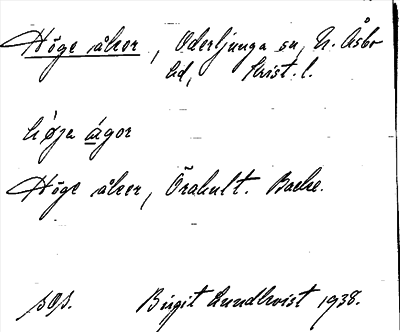 Höge åker, Oderljunga sn, N. Åsbo
hd, Krist. l.
hø̀ja ágor
Höge åker, Örahult. Backe.
sgs. Birgit Lundkvist 1938.